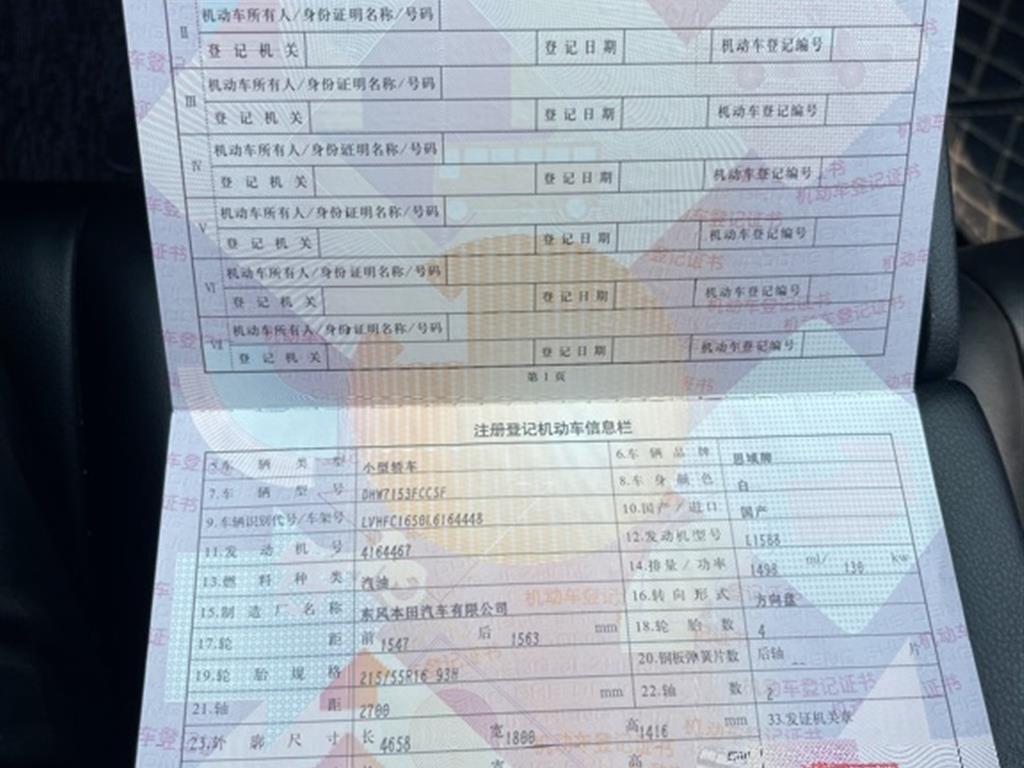 II 机动车所有人/身份证明名称/号码
登记机关 登记日期 机动车登记编号
III 机动车所有人/身份证明名称/号码
登记机关 登记日期 机动车登记编号
IV 机动车所有人/身份证明名称/号码
登记机关 登记日期 机动车登记编号
V 机动车所有人/身份证明名称/号码
登记机关 登记日期 机动车登记编号
VI 机动车所有人/身份证明名称/号码
登记机关 登记日期 机动车登记编号
VII 机动车所有人/身份证明名称/号码
登记机关 登记日期 机动车登记编号
第1页
注册登记机动车信息栏
5.车辆类型 小型轿车 6.车辆品牌 思域牌
7.车辆型号 DHW7153FCCSF 8.车身颜色 白
9.车辆识别代号/车架号 10.国产/进口 国产
11.发动机号 4164467 12.发动机型号 L15B8
13.燃料种类 汽油 14.排量/功率 1498 ml/ 130 kw
15.制造厂名称 东风本田汽车有限公司 16.转向形式 方向盘
17.轮距 前 1547 后 1563 mm 18.轮胎数 4
19.轮胎规格 215/55R16 93H 20.钢板弹簧片数 后轴 -- 片
21.轴距 2700 mm 22.轴数 2
23.外廓尺寸 长 4658 宽 1800 高 1416 mm 33.发证机关章
宽 高